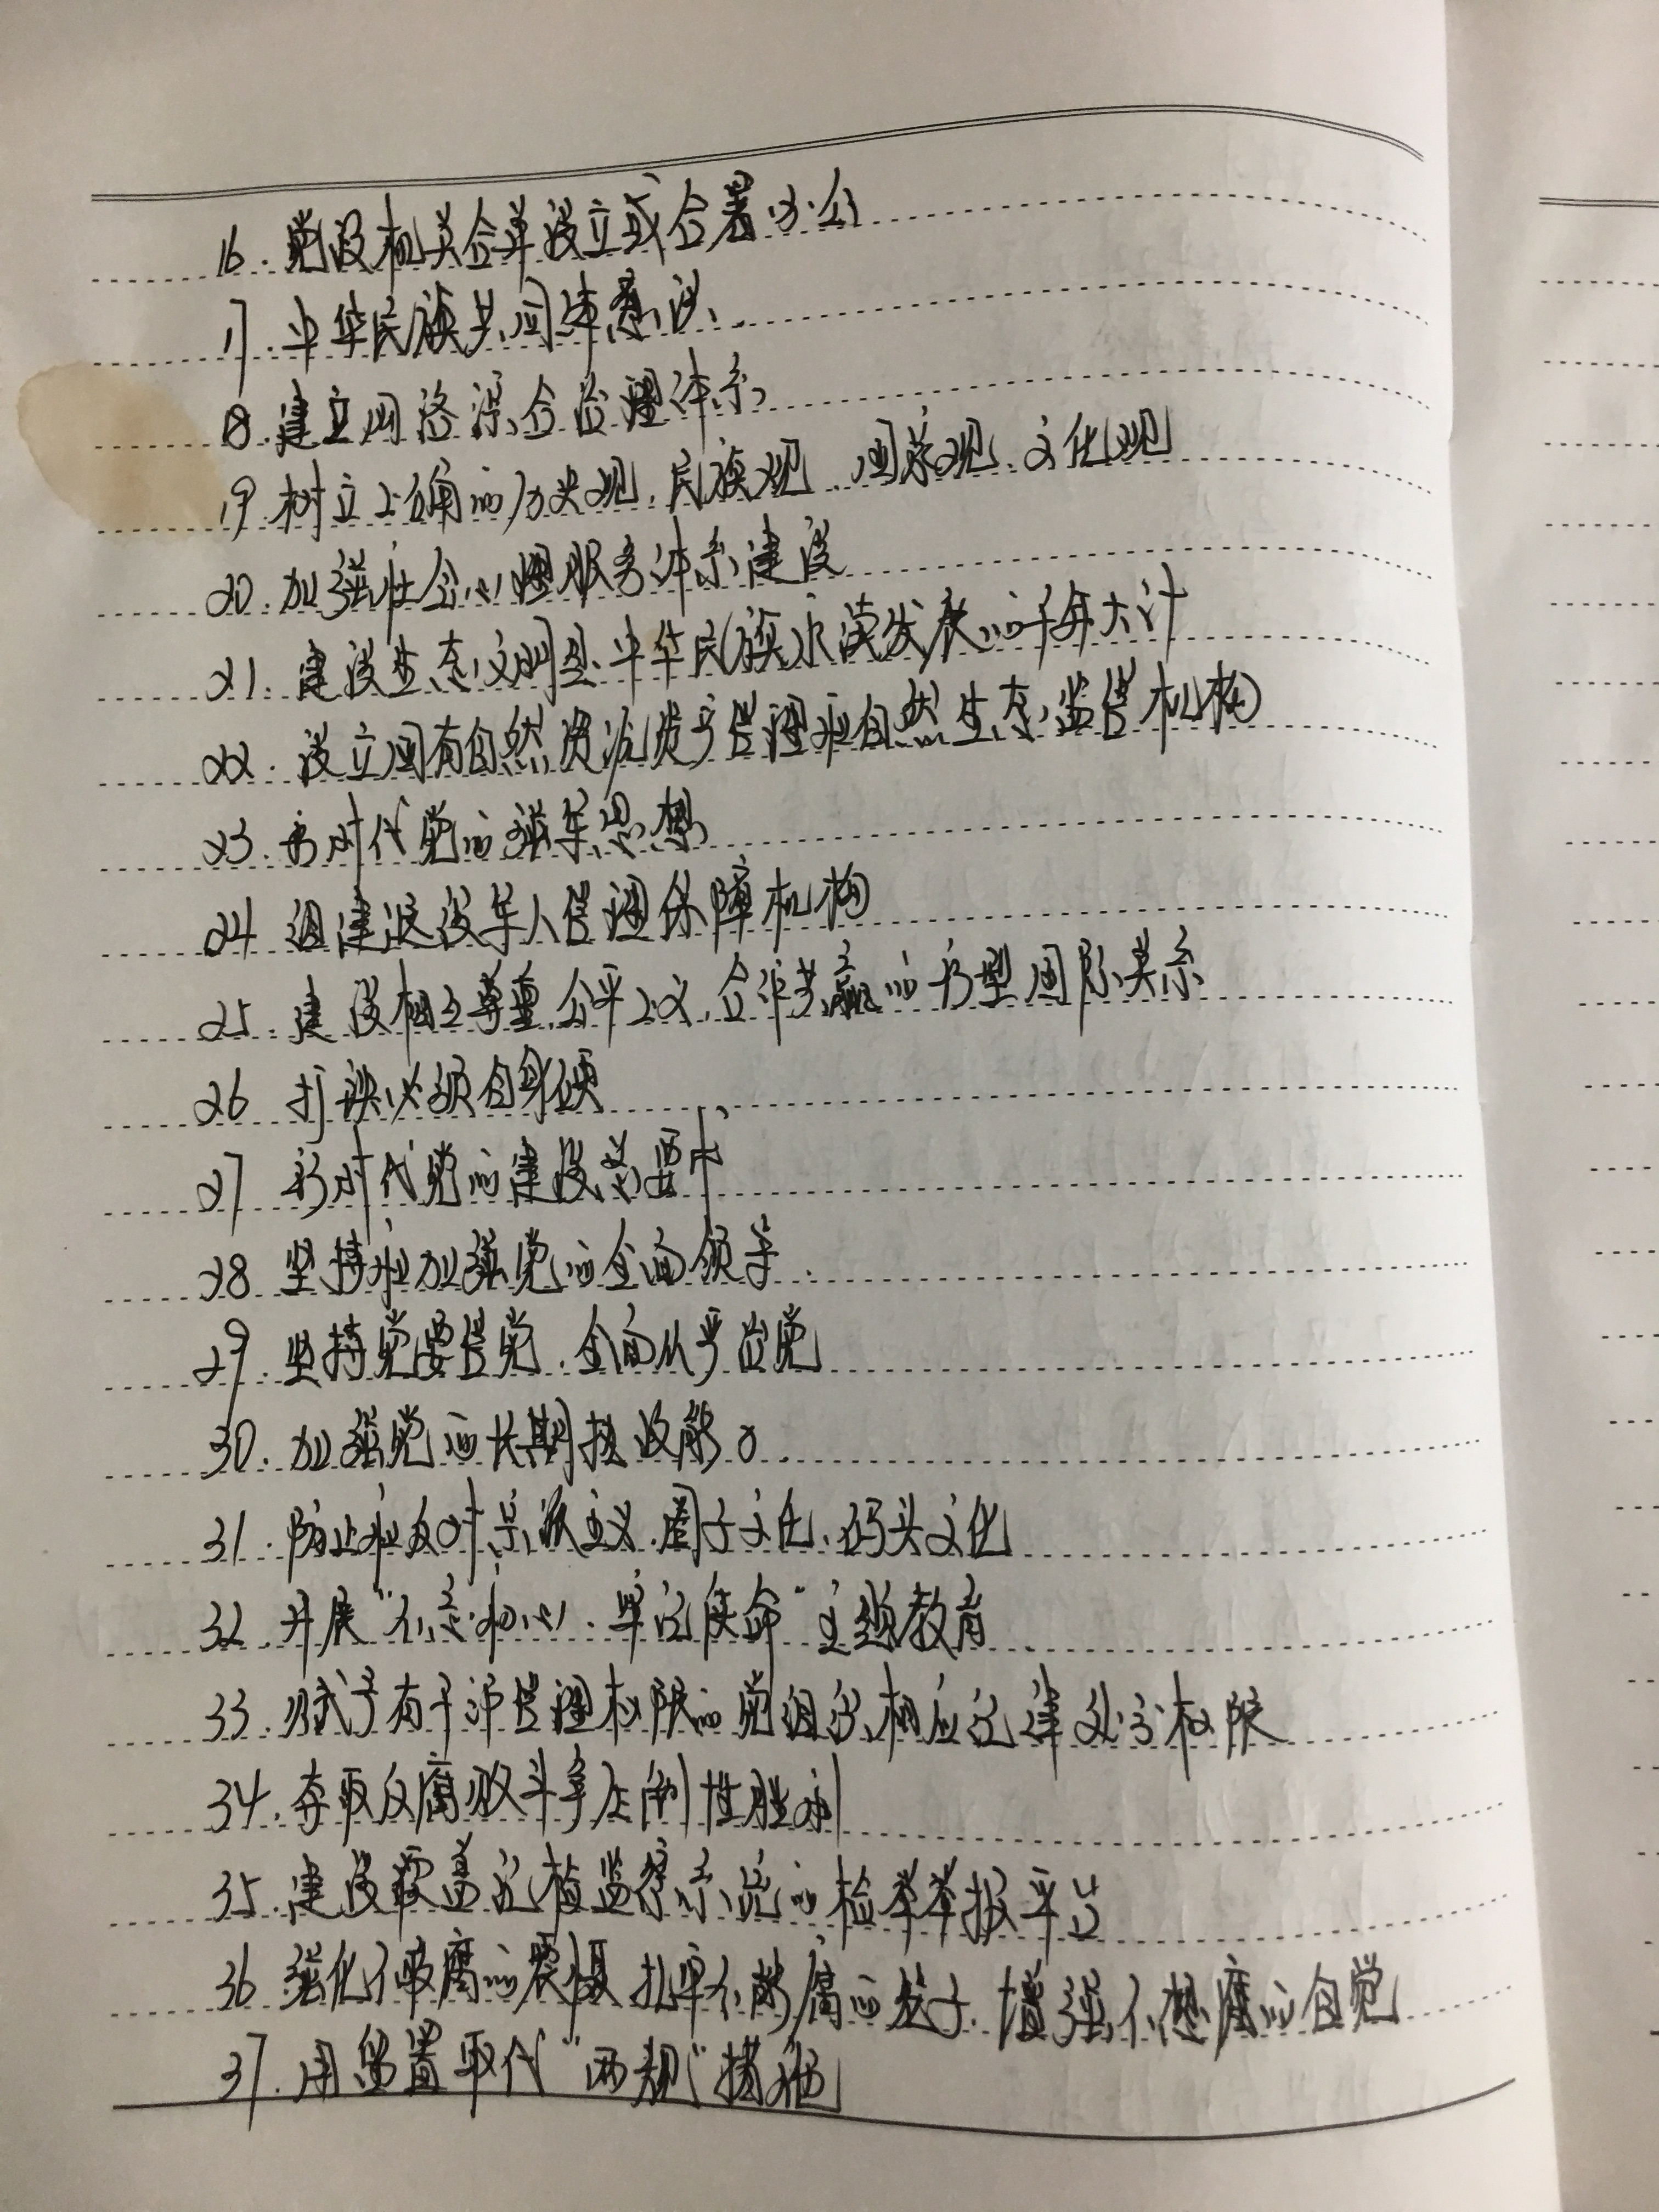 16. 党政机关合并设立或合署办公
17. 中华民族共同体意识
18. 建立网络综合治理体系
19. 树立正确的历史观、民族观、国家观、文化观
20. 加强社会心理服务体系建设
21. 建设生态文明是中华民族永续发展的千年大计
22. 设立国有自然资源资产管理和自然生态监管机构
23. 新时代党的强军思想
24 组建退役军人管理保障机构
25. 建设相互尊重、公平正义、合作共赢的新型国际关系
26 打铁必须自身硬
27 新时代党的建设总要求
28 坚持和加强党的全面领导
29. 坚持党要管党、全面从严治党
30. 加强党的长期执政能力
31. 防止和反对宗派主义、圈子文化、码头文化
32. 开展“不忘初心、牢记使命”主题教育
33. 赋予有干部管理权限的党组织相应纪律处分权限
34. 夺取反腐败斗争压倒性胜利
35. 建设覆盖纪检监察系统的检举举报平台
36 强化不敢腐的震慑 扎牢不能腐的笼子、增强不想腐的自觉
37. 用留置取代“两规”措施